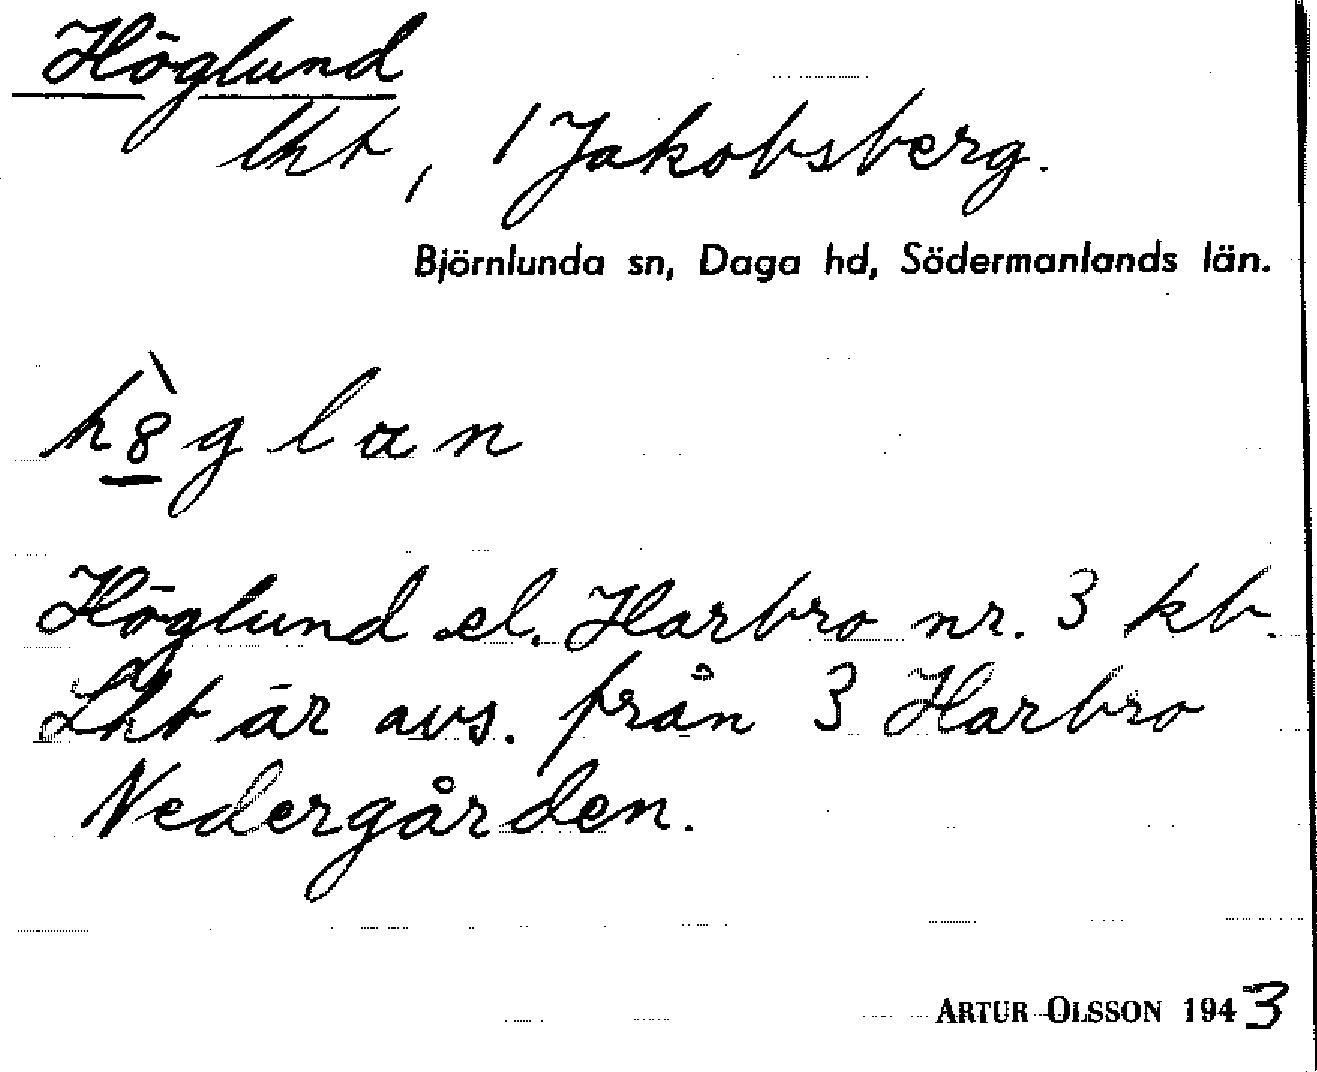 Höglund
lht, 1 Jakobsberg.
Björnlunda sn, Daga hd, Södermanlands län.
h8̀g lan
Höglund el. Harbro nr. 3 kb.
Lht är avs. från 3 Harbro
Nedergården.
ARTUR OLSSON 1943